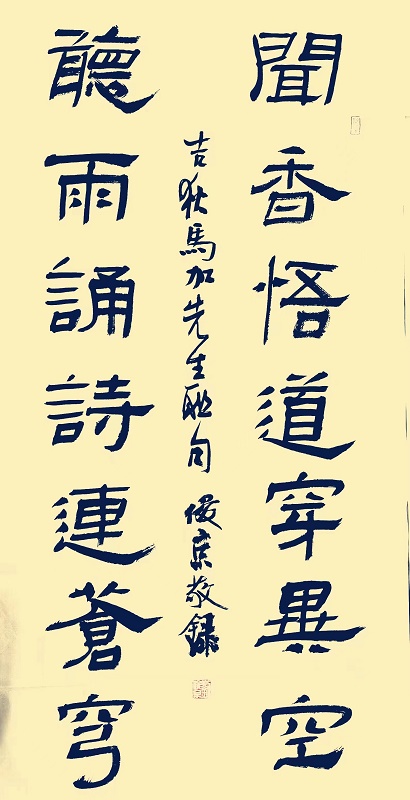 聞香悟道穿異空
聽雨誦詩連蒼穹
吉狄馬加先生聯句 俊京敬錄